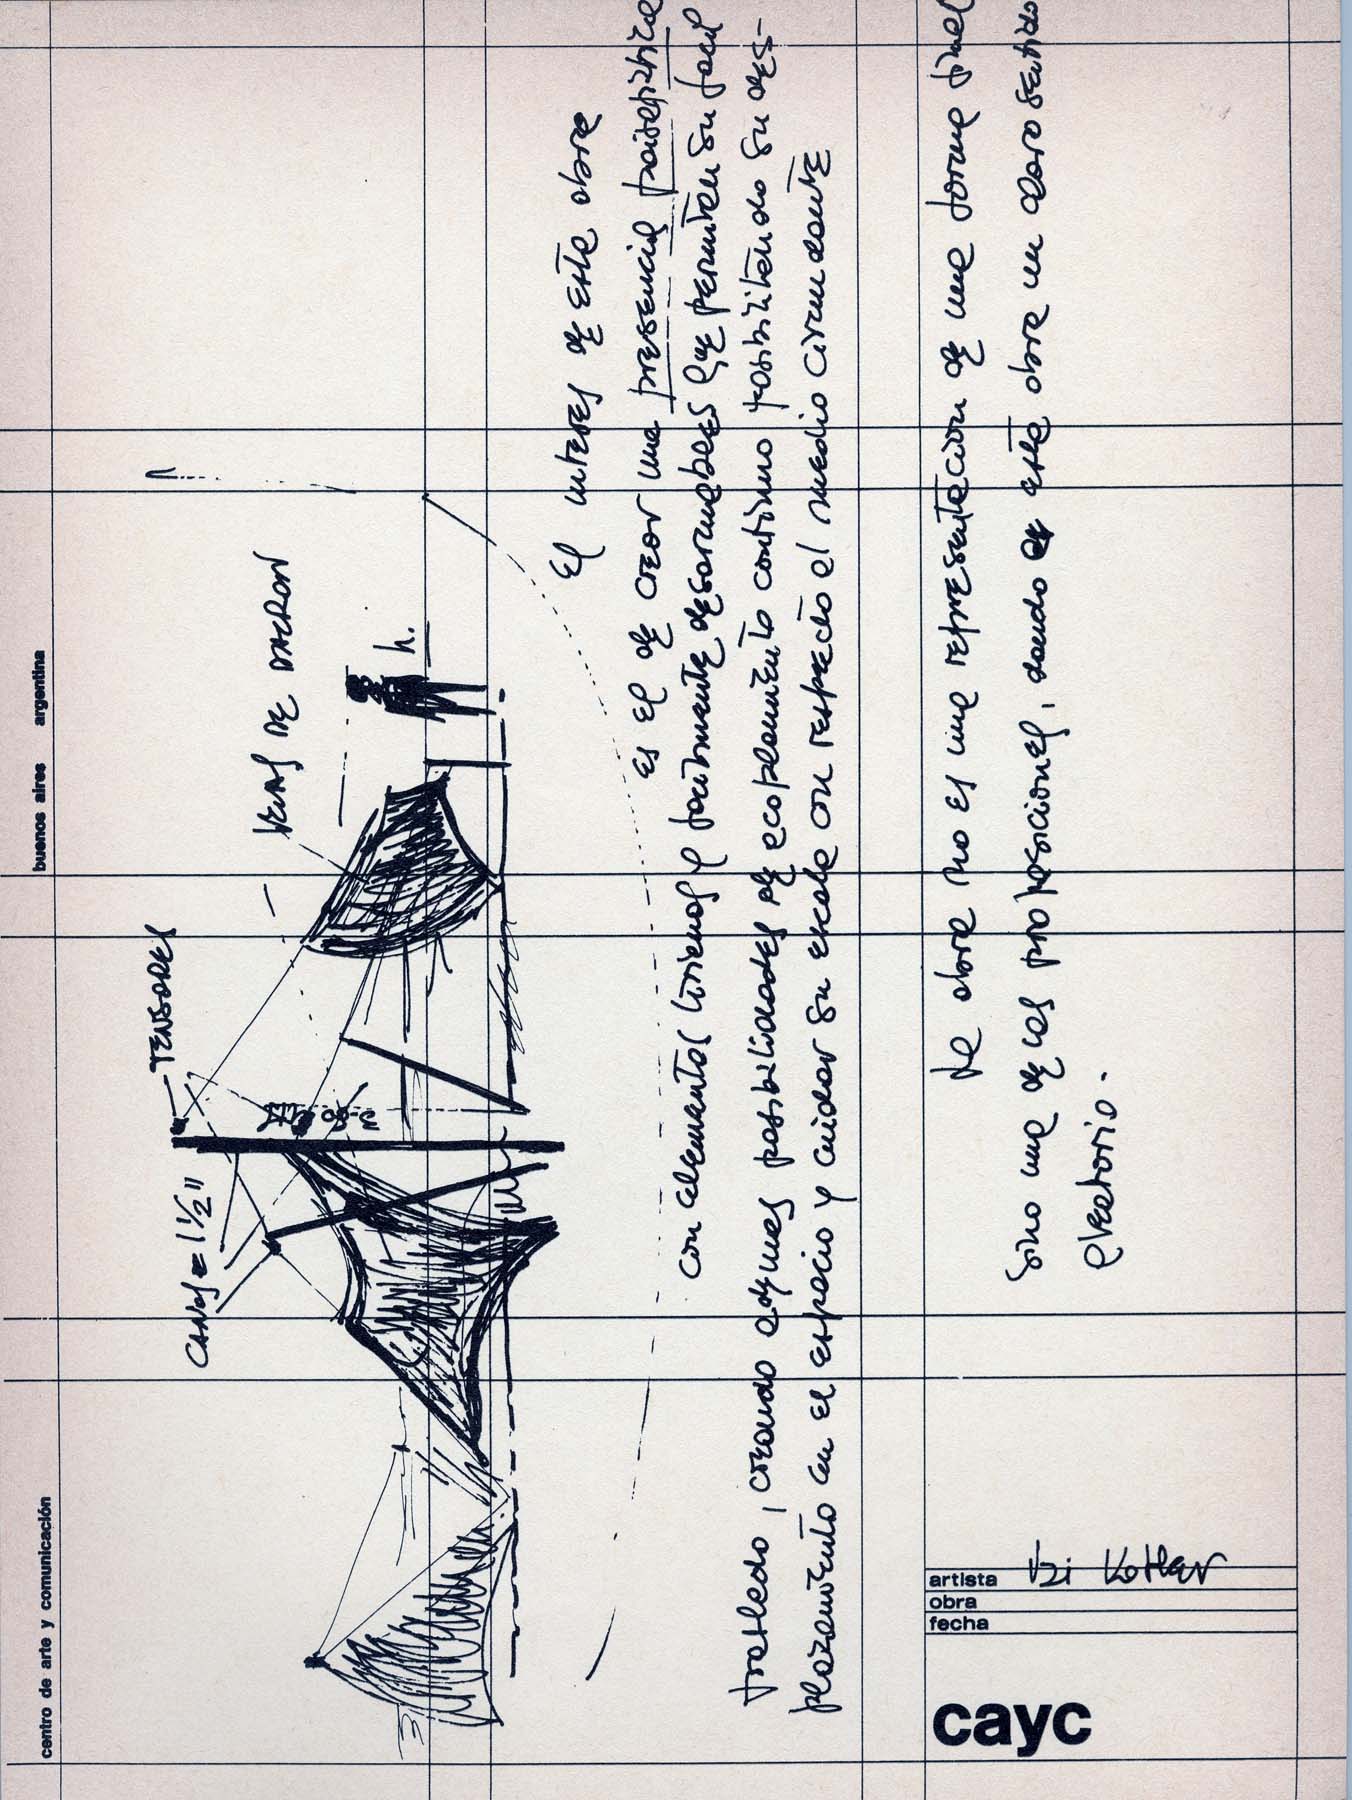 centro de arte y comunicación buenos aires argentina
TENSORES
CAÑOS = 1 1/2"
VELAS DE DACRON
h.
El interes de esta obra
es el de crear una presencia paisajistica
con elementos livianos y facilmente desarmables que permiten su facil
traslado, creando ademas posibilidades de acoplamiento continuo posibilitando su des-
plazamiento en el espacio y cuidar su escala con respecto al medio circundante
La obra no es una representacion de una forma final
sino una de las proposiciones, dando a esta obra un claro sentido
aleatorio.
artista Uzi Kotler
obra
fecha
cayc